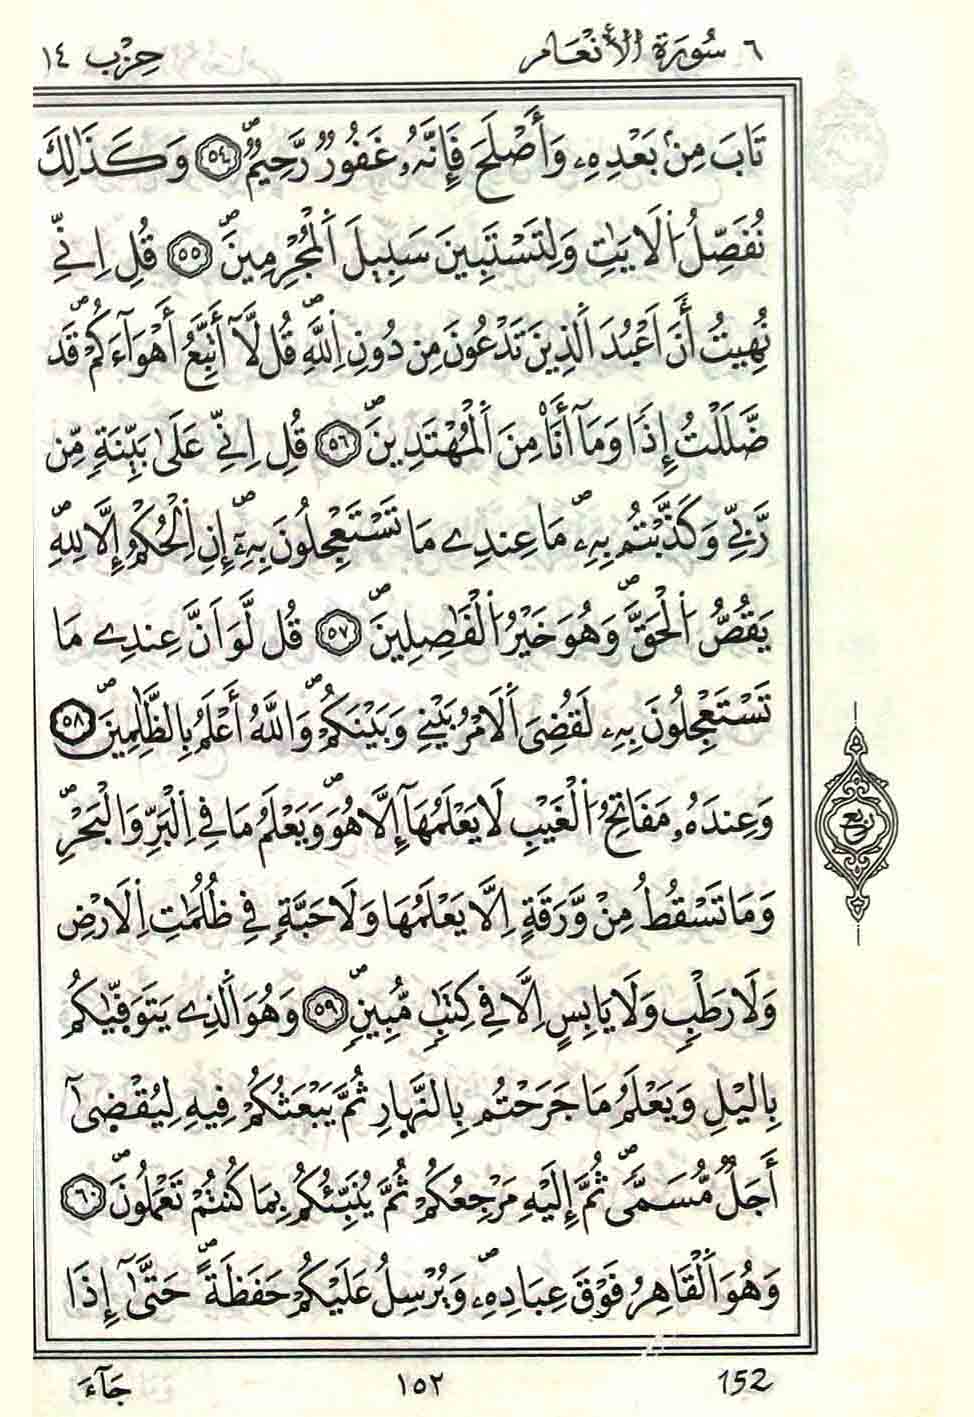 ٦ سُورَةُ الْأَنْعَامِ حِزْب ١٤
تَابَ مِنۢ بَعْدِهِۦ وَأَصْلَحَ فَإِنَّهُۥ غَفُورٞ رَّحِيمٞۖ ٥٤ وَكَذَٰلِكَ
نُفَصِّلُ اُ۬لَايَٰتِ وَلِتَسْتَبِينَ سَبِيلَ اَ۬لْمُجْرِمِينَۖ ٥٥ قُلِ اِنِّے
نُهِيتُ أَنَ اَعْبُدَ اَ۬لذِينَ تَدْعُونَ مِن دُونِ اِ۬للَّهِۖ قُل لَّآ أَتَّبِعُ أَهْوَآءَكُمْۖ قَد
ضَّلَلْتُ إِذَا وَمَآ أَنَا۠ مِنَ اَ۬لْمُهْتَدِينَۖ ٥٦ قُلِ اِنِّے عَلَىٰ بَيِّنَةٖ مِّن
رَّبِّے وَكَذَّبْتُم بِهِۦۖ مَا عِندِے مَا تَسْتَعْجِلُونَ بِهِۦٓۖ إِنِ اِ۬لْحُكْمُ إِلَّا لِلهِۖ
يَقُصُّ اُ۬لْحَقَّۖ وَهُوَ خَيْرُ اُ۬لْفَٰصِلِينَۖ ٥٧ قُل لَّوَ اَنَّ عِندِے مَا
تَسْتَعْجِلُونَ بِهِۦ لَقُضِيَ اَ۬لَامْرُ بَيْنِے وَبَيْنَكُمْۖ وَاللَّهُ أَعْلَمُ بِالظَّٰلِمِينَۖ ٥٨
وَعِندَهُۥ مَفَاتِحُ اُ۬لْغَيْبِ لَا يَعْلَمُهَآ إِلَّا هُوَۖ وَيَعْلَمُ مَا فِے اِ۬لْبَرِّ وَالْبَحْرِۖ
وَمَا تَسْقُطُ مِنْ وَّرَقَةٍ اِلَّا يَعْلَمُهَا وَلَا حَبَّةٖ فِے ظُلُمَٰتِ اِ۬لَارْضِ
وَلَا رَطْبٖ وَلَا يَابِسٍ اِلَّا فِے كِتَٰبٖ مُّبِينٖۖ ٥٩ وَهُوَ اَ۬لذِے يَتَوَفّ۪يٰكُم
بِاليْلِ وَيَعْلَمُ مَا جَرَحْتُم بِالنَّه۪ارِ ثُمَّ يَبْعَثُكُمْ فِيهِ لِيُقْض۪يٰٓ
أَجَلٞ مُّسَمّيٗۖ ثُمَّ إِلَيْهِ مَرْجِعُكُمْ ثُمَّ يُنَبِّئُكُم بِمَا كُنتُمْ تَعْمَلُونَۖ ٦٠
وَهُوَ اَ۬لْقَاهِرُ فَوْقَ عِبَادِهِۦۖ وَيُرْسِلُ عَلَيْكُمْ حَفَظَةًۖ حَتَّىٰٓ إِذَا
رُبُع
جَآءَ ١٥٢ 152